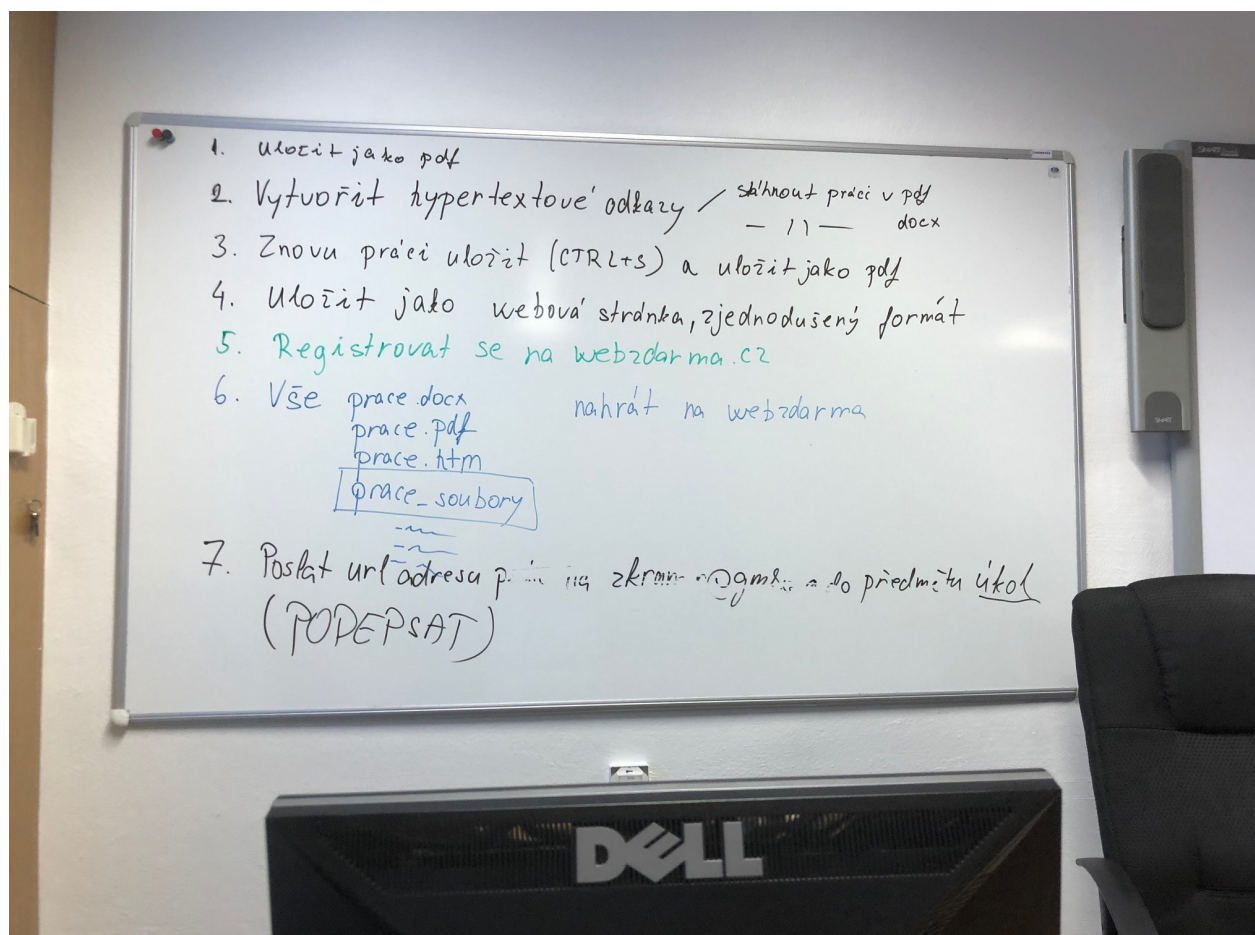 1. Uložit jako pdf
2. Vytvořit hypertextové odkazy / stáhnout práci v pdf
— 11 — docx
3. Znovu práci uložit (CTRL+S) a uložit jako pdf
4. Uložit jako webová stránka, zjednodušený formát
5. Registrovat se na webzdarma.cz
6. Vše prace.docx nahrát na webzdarma
prace.pdf
prace.htm
prace_soubory
7. Poslat url adresu na do předmětu úkol
(PODEPSAT)
SMART
DELL